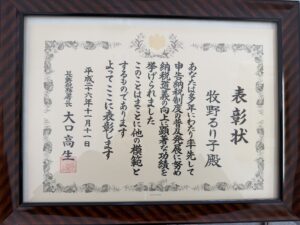 表彰状
牧野るり子殿
あなたは多年にわたり率先して
申告納税制度の普及発展に努め
納税道義の向上に顕著な功績を
挙げられました
このことはまことに他の模範と
するものであります
よってここに表彰します
平成二十六年十一月十一日
税務署長 大口高生